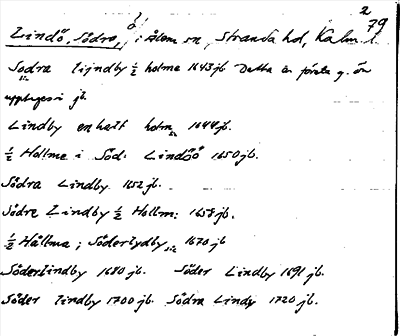 2
79
Lindö, Södra, ö i Ålem sn, Stranda hd, Kalm. l.
Sodra lijndby ½ holme 1643 jb Detta är första g. ön
upptages i jb.
Lindby en half holm 1644 jb.
½ Hollme i Söd: Lindöö 1650 jb.
Södra Lindby 1652 jb.
Södre Lindby ½ Hollm: 1658 jb.
½ Hållma i Söderlydby 1670 jb
Söderlindby 1680 jb. Söder Lindby 1691 jb.
Söder lindby 1700 jb. Södra Lindy 1720 jb.